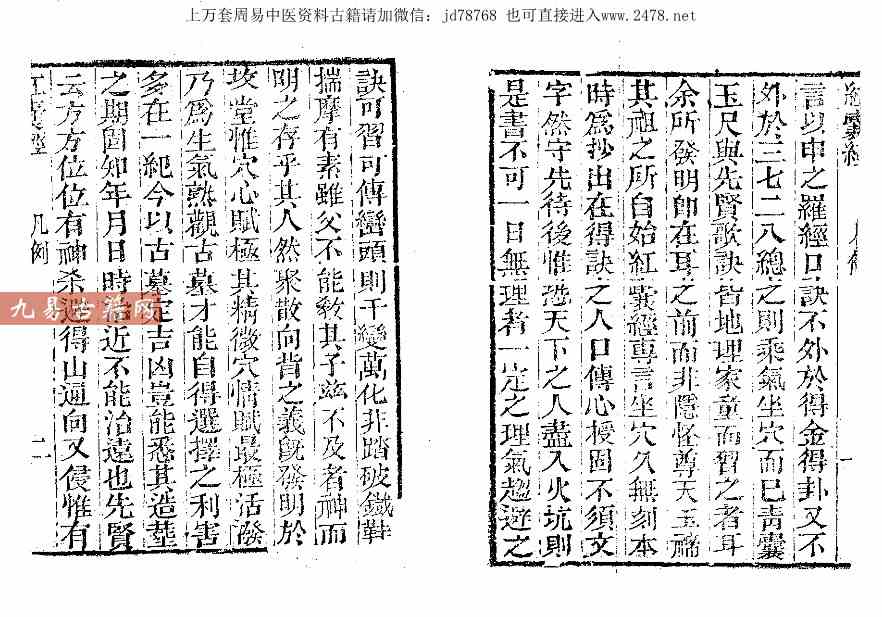 上万套周易中医资料古籍请加微信：jd78768 也可直接进入www.2478.net
言以申之羅經口訣不外於得金得卦又不
外於三七二八總之則乘氣坐穴而已青囊
玉尺與先賢歌訣皆地理家童而習之者耳
余所發明即在耳之前而非隱怪尊天玉禰
其祖之所自始紅囊經專言坐穴久無刻本
時為抄出在得訣之人口傳心授固不須文
字然守先待後惟恐天下之人盡入火坑則
是書不可一日無理者一定之理氣趨避之
訣可習可傳巒頭則千變萬化非踏破鐵鞋
揣摩有素雖父不能教其子茲不及者神而
明之存乎其人然聚散向背之義既發明於
坟堂惟穴心賦極其精微穴情賦最極活潑
乃為生氣熟觀古墓才能自得選擇之利害
多在一紀今以古墓定吉凶豈能悉其造塟
之期固知年月日時近不能治遠也先賢
云方方位位有神杀避得山逼向又侵惟有
紅囊經
凡例
二
九易古籍网